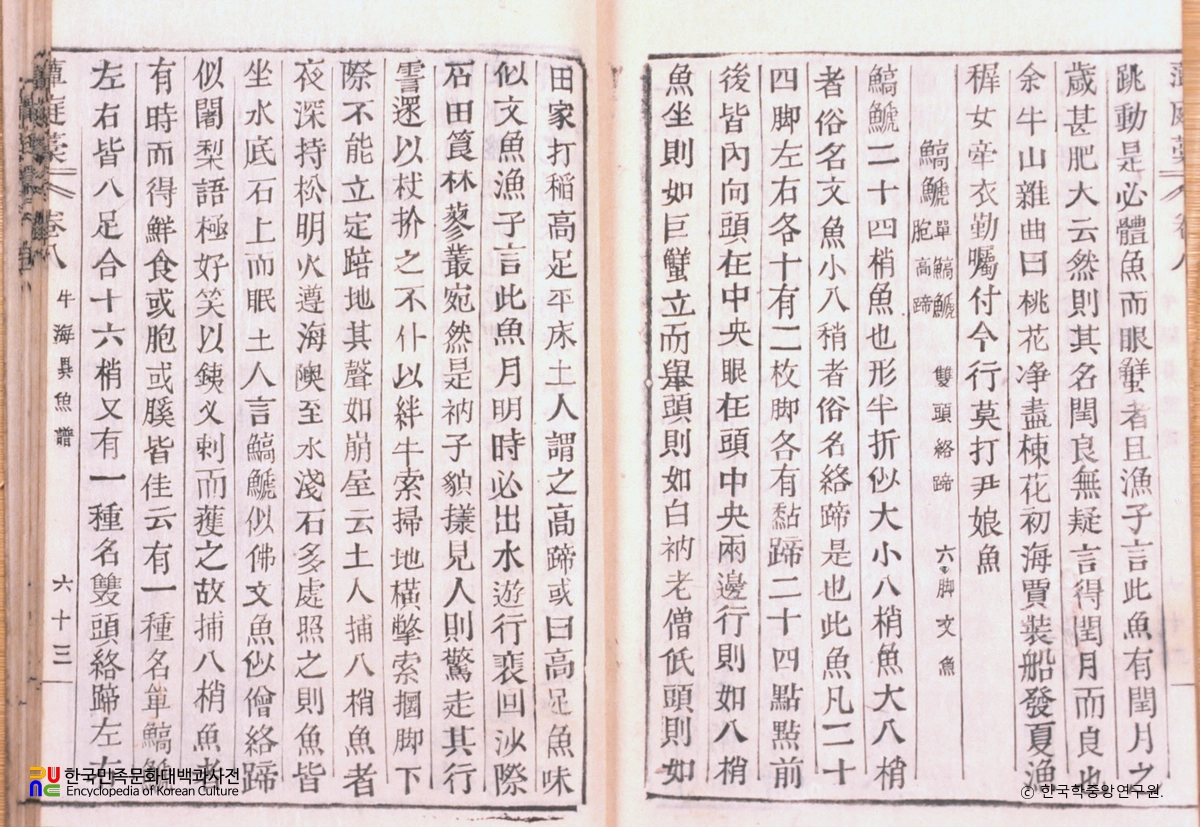 跳動是必體魚而眼蟹者且漁子言此魚有閏月之
歲甚肥大云然則其名閏良無疑言得閏月而良也
余牛山雜曲曰桃花净盡楝花初海賈裝船發夏漁
穉女牽衣勤囑付今行莫打尹娘魚
鰝鯱 單鰝鯱 胞高蹄 雙頭絡蹄 六脚文魚
鰝鯱二十四梢魚也形半折似大小八梢魚大八梢
者俗名文魚小八梢者俗名絡蹄是也此魚凡二十
四脚左右各十有二枚脚各有黏蹄二十四點點前
後皆內向頭在中央眼在頭中央兩邊行則如八梢
魚坐則如巨蟹立而舉頭則如白衲老僧低頭則如
田家打稻高足平床土人謂之高蹄或曰高足魚味
似文魚漁子言此魚月明時必出水遊行裵回沙際
石田莨林蓼叢宛然是衲子貌㨾見人則驚走其行
霅還以杖扴之不仆以絆牛索掃地橫擎索擱脚下
際不能立定踣地其聲如崩屋云土人捕八梢魚者
夜深持松明火遵海隩至水淺石多處照之則魚皆
坐水底石上而眠土人言鰝鯱似佛文魚似僧絡蹄
似闍梨語極好笑以銕叉刺而蒦之故捕八梢魚者
有時而得鮮食或胞或臊皆佳云有一種名單鰝鯱
左右皆八足合十六梢又有一種名雙頭絡蹄左右
藫庭藁 卷八 牛海異魚譜 六十三
한국민족문화대백과사전
Encyclopedia of Korean Culture
ⓒ 한국학중앙연구원.